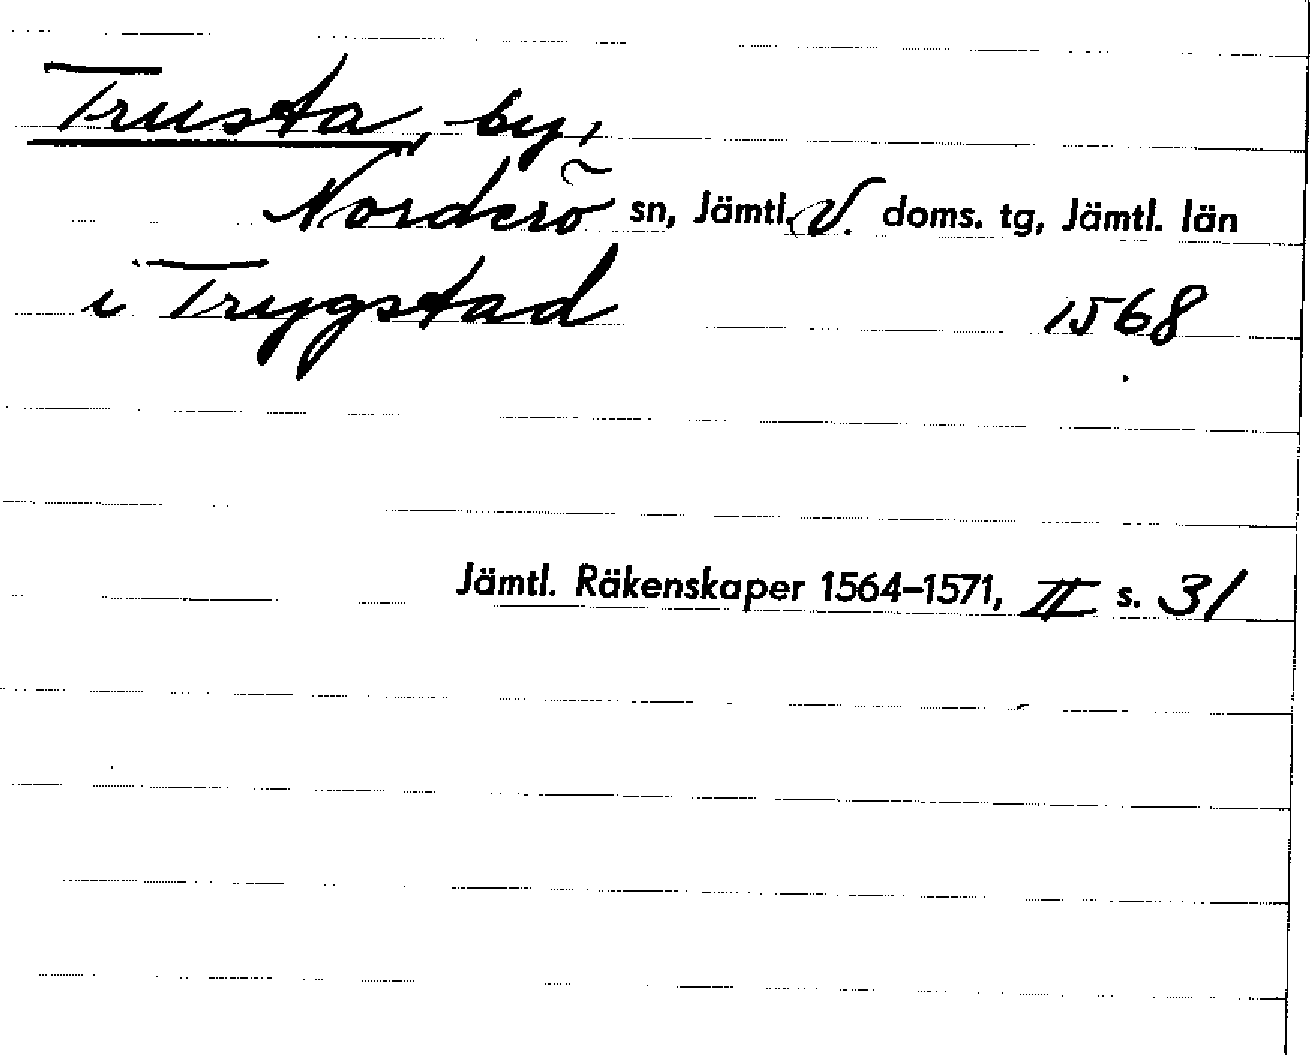 Trusta, by,
Norderö sn, Jämtl. V. doms. tg, Jämtl. län
i Trygstad 1568
Jämtl. Räkenskaper 1564–1571, II s. 31